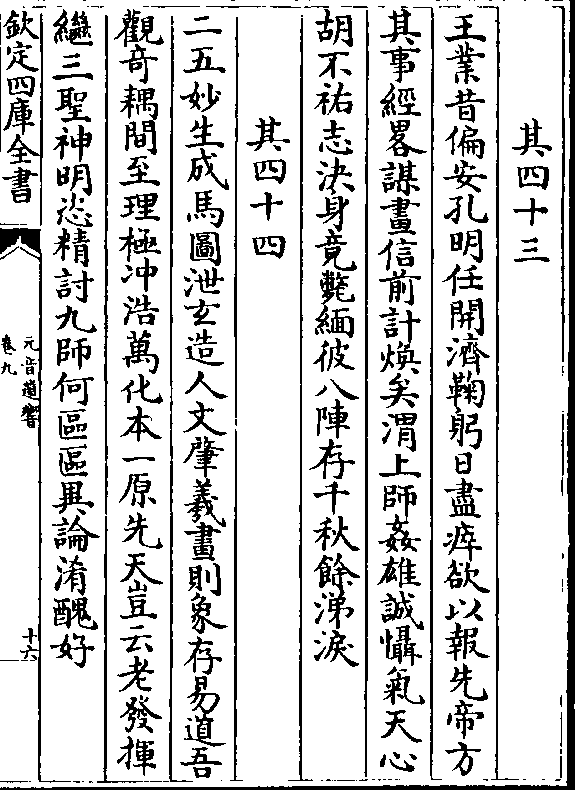 其四十三
王業昔偏安孔明任開濟鞠躬日盡瘁欲以報先帝方
其事經畧謀畫信前計煥矣渭上師姦雄誠懾氣天心
胡不祐志決身竟斃緬彼八陣存千秋餘涕淚
其四十四
二五妙生成馬圖泄玄造人文肇羲畫則象存易道吾
觀奇耦間至理極冲浩萬化本一原先天豈云老發揮
繼三聖神明恣精討九師何區區異論淆醜好
欽定四庫全書
元音遺響
卷九
十六